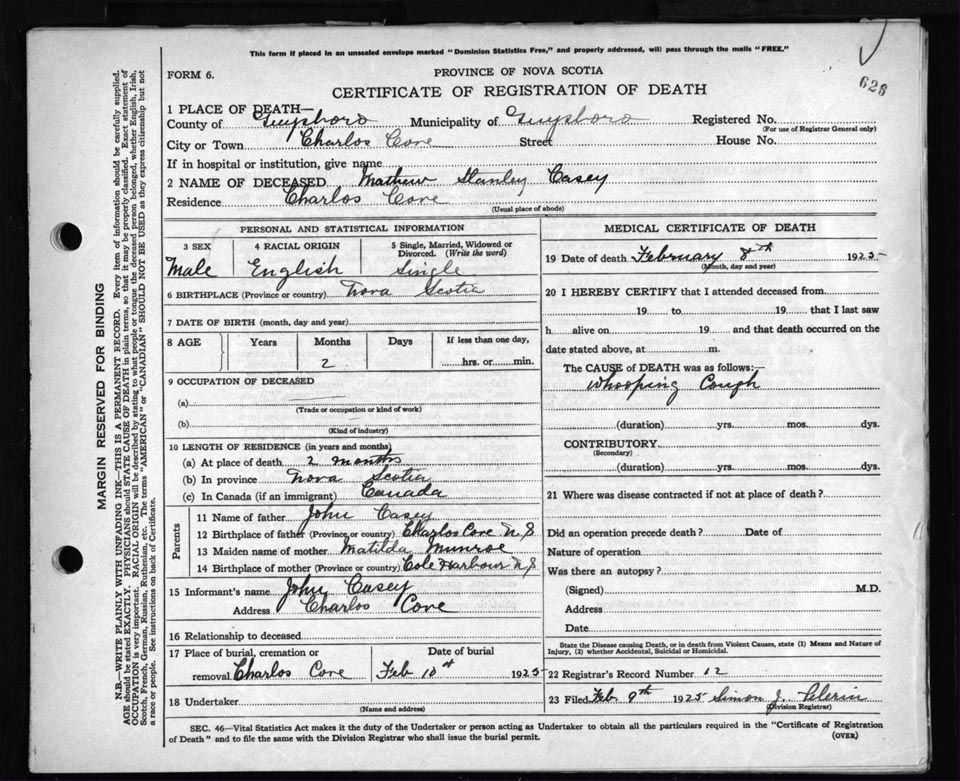 This form if placed in an unsealed envelope marked "Dominion Statistics Free," and properly addressed, will pass through the mails "FREE."
626
FORM 6.
PROVINCE OF NOVA SCOTIA
CERTIFICATE OF REGISTRATION OF DEATH
1 PLACE OF DEATH—
County of Guysboro Municipality of Guysboro Registered No.
(For use of Registrar General only)
City or Town Charlos Cove Street House No.
If in hospital or institution, give name
2 NAME OF DECEASED Mathew Stanley Casey
Residence Charlos Cove
(Usual place of abode)
PERSONAL AND STATISTICAL INFORMATION
3 SEX 4 RACIAL ORIGIN 5 Single, Married, Widowed or Divorced. (Write the word)
Male English Single
6 BIRTHPLACE (Province or country) Nova Scotia
7 DATE OF BIRTH (month, day and year)
8 AGE Years Months Days If less than one day,
2 hrs. or min.
9 OCCUPATION OF DECEASED
(a)
(Trade or occupation or kind of work)
(b)
(Kind of industry)
10 LENGTH OF RESIDENCE (in years and months)
(a) At place of death 2 months
(b) In province Nova Scotia
(c) In Canada (if an immigrant) Canada
Parents
11 Name of father John Casey
12 Birthplace of father (Province or country) Charlos Cove N.S
13 Maiden name of mother Matilda Munroe
14 Birthplace of mother (Province or country) Cole Harbour N.S
15 Informant's name John Casey
Address Charlos Cove
16 Relationship to deceased
17 Place of burial, cremation or removal Charlos Cove Date of burial Feb 10th 1925
18 Undertaker
(Name and address)
MEDICAL CERTIFICATE OF DEATH
19 Date of death February 8th 1925
(Month, day and year)
20 I HEREBY CERTIFY that I attended deceased from
19 to 19 that I last saw
h alive on 19 and that death occurred on the
date stated above, at m.
The CAUSE of DEATH was as follows:—
Whooping Cough
(duration) yrs. mos. dys.
CONTRIBUTORY
(Secondary)
(duration) yrs. mos. dys.
21 Where was disease contracted if not at place of death?
Did an operation precede death? Date of
Nature of operation
Was there an autopsy?
(Signed) M.D.
Address
Date
State the Disease causing Death, or in death from Violent Causes, state (1) Means and Nature of Injury, (2) whether Accidental, Suicidal or Homicidal.
22 Registrar's Record Number 12
23 Filed Feb 9th 1925 Simon J. Pelerin
(Division Registrar)
SEC. 46—Vital Statistics Act makes it the duty of the Undertaker or person acting as Undertaker to obtain all the particulars required in the "Certificate of Registration
of Death" and to file the same with the Division Registrar who shall issue the burial permit. (OVER)
MARGIN RESERVED FOR BINDING
N.B.—WRITE PLAINLY WITH UNFADING INK—THIS IS A PERMANENT RECORD. Every item of information should be carefully supplied.
AGE should be stated EXACTLY. PHYSICIANS should STATE CAUSE OF DEATH in plain terms, so that it may be properly classified. Exact statement of
OCCUPATION is very important. RACIAL ORIGIN will be described by stating to what people or tongue the deceased person belonged, whether English, Irish,
Scotch, French, German, Russian, Ruthenian, etc. The terms "AMERICAN" or "CANADIAN" SHOULD NOT BE USED as they express citizenship but not
a race or people. See instructions on back of Certificate.